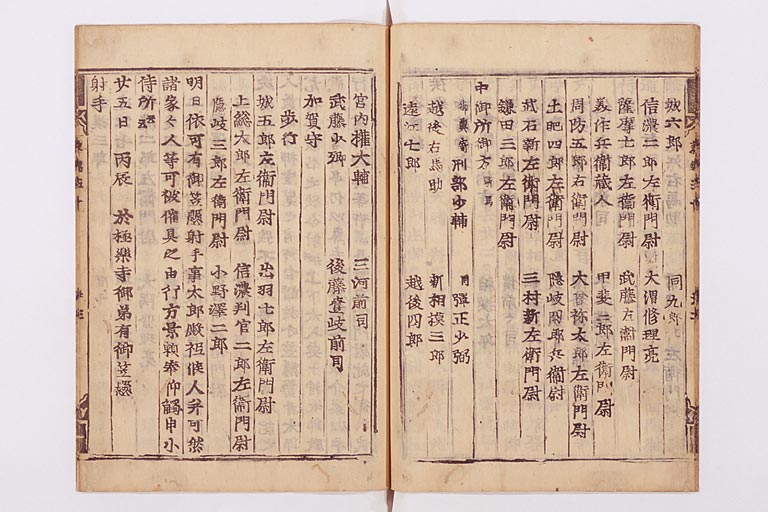 城六郎 同九郎
信濃二郎左衛門尉 大泻修理亮
薩摩七郎左衛門尉 武藤左衛門尉
美作兵衛蔵人 甲斐三郎左衛門尉
周防五郎左衛門尉 大曾祢太郎左衛門尉
土肥四郎左衛門尉 隠岐四郎兵衛尉
武石新左衛門尉 三村新左衛門尉
鎌田三郎左衛門尉
中御所御方
刑部少輔 弾正少弼
越後右馬助 新相摸三郎
遠江七郎 越後四郎
宮内権大輔 三河前司
武藤少卿 後藤壹岐前司
加賀守
歩行
城五郎左衛門尉 出羽七郎左衛門尉
上総六郎左衛門尉 信濃判官二郎左衛門尉
隠岐三郎左衛門尉 小野澤二郎
明日依可有御笠懸射手事太郎殿祗候人并可然
諸家々人等可被催具之由行方景頼奉仰觸申小
侍所云云
廿五日 丙辰 於極樂寺御第有御笠懸
射手